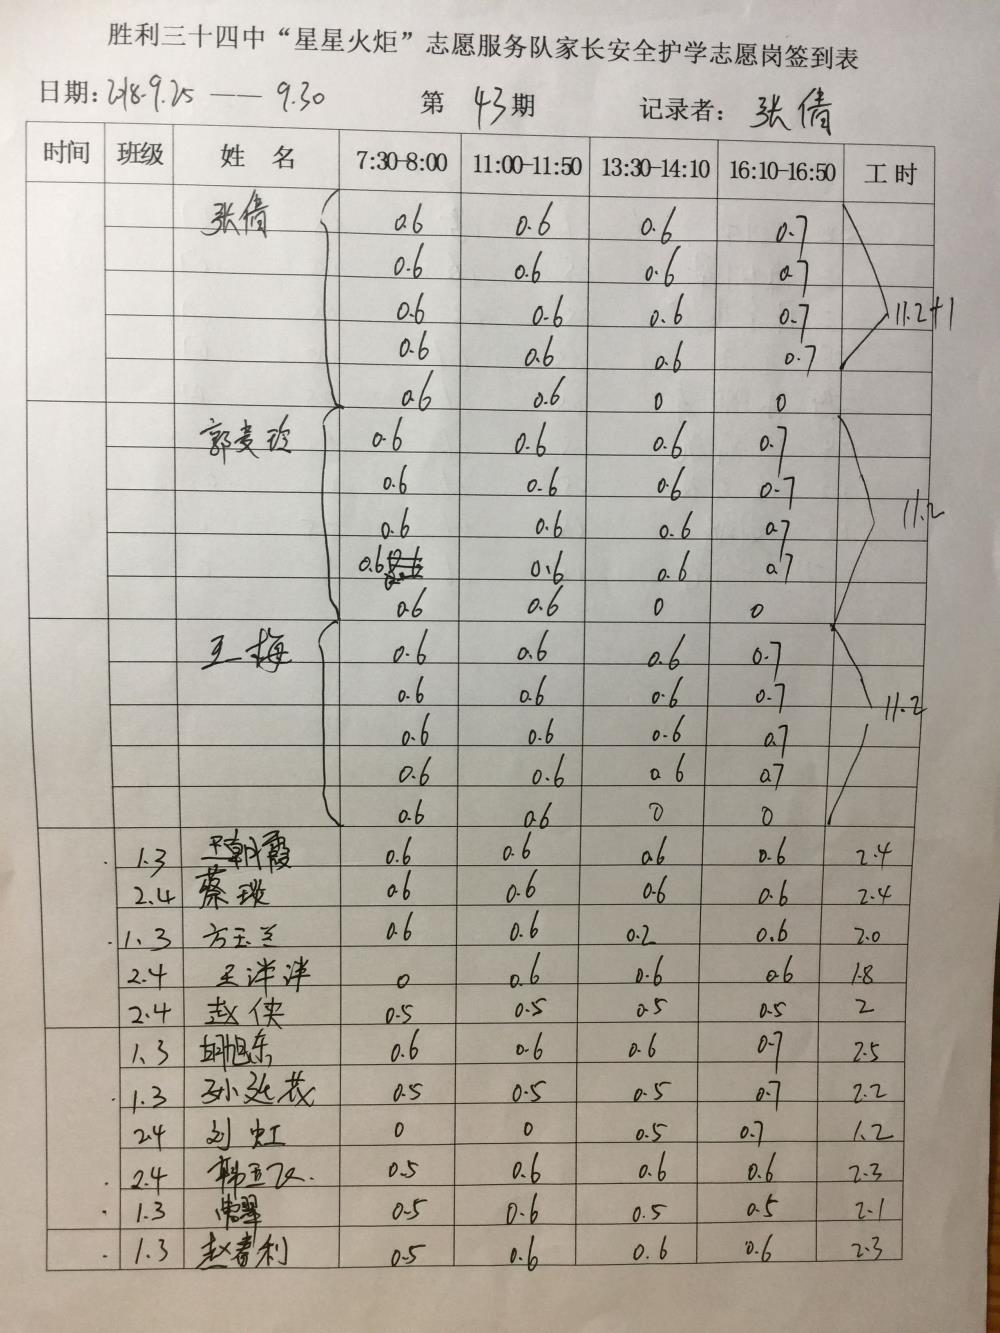 胜利三十四中“星星火炬”志愿服务队家长安全护学志愿岗签到表
日期:2018.9.25 —— 9.30 第 43期 记录者: 张倩
时间 班级 姓 名 7:30-8:00 11:00-11:50 13:30-14:10 16:10-16:50 工 时
张倩 0.6 0.6 0.6 0.7
0.6 0.6 0.6 0.7
0.6 0.6 0.6 0.7 11.2+1
0.6 0.6 0.6 0.7
0.6 0.6 0 0
郭麦玲 0.6 0.6 0.6 0.7
0.6 0.6 0.6 0.7
0.6 0.6 0.6 0.7 11.2
0.6 0.6 0.6 0.7
0.6 0.6 0 0
王梅 0.6 0.6 0.6 0.7
0.6 0.6 0.6 0.7 11.2
0.6 0.6 0.6 0.7
0.6 0.6 0.6 0.7
0.6 0.6 0 0
1.3 王朝霞 0.6 0.6 0.6 0.6 2.4
2.4 蔡琰 0.6 0.6 0.6 0.6 2.4
1.3 方玉兰 0.6 0.6 0.2 0.6 2.0
2.4 王洋洋 0 0.6 0.6 0.6 1.8
2.4 赵侠 0.5 0.5 0.5 0.5 2
1.3 胡旭东 0.6 0.6 0.6 0.7 2.5
1.3 孙延花 0.5 0.5 0.5 0.7 2.2
2.4 刘虹 0 0 0.5 0.7 1.2
2.4 韩玉 0.5 0.6 0.6 0.6 2.3
1.3 0.5 0.6 0.5 0.5 2.1
1.3 赵春利 0.5 0.6 0.6 0.6 2.3